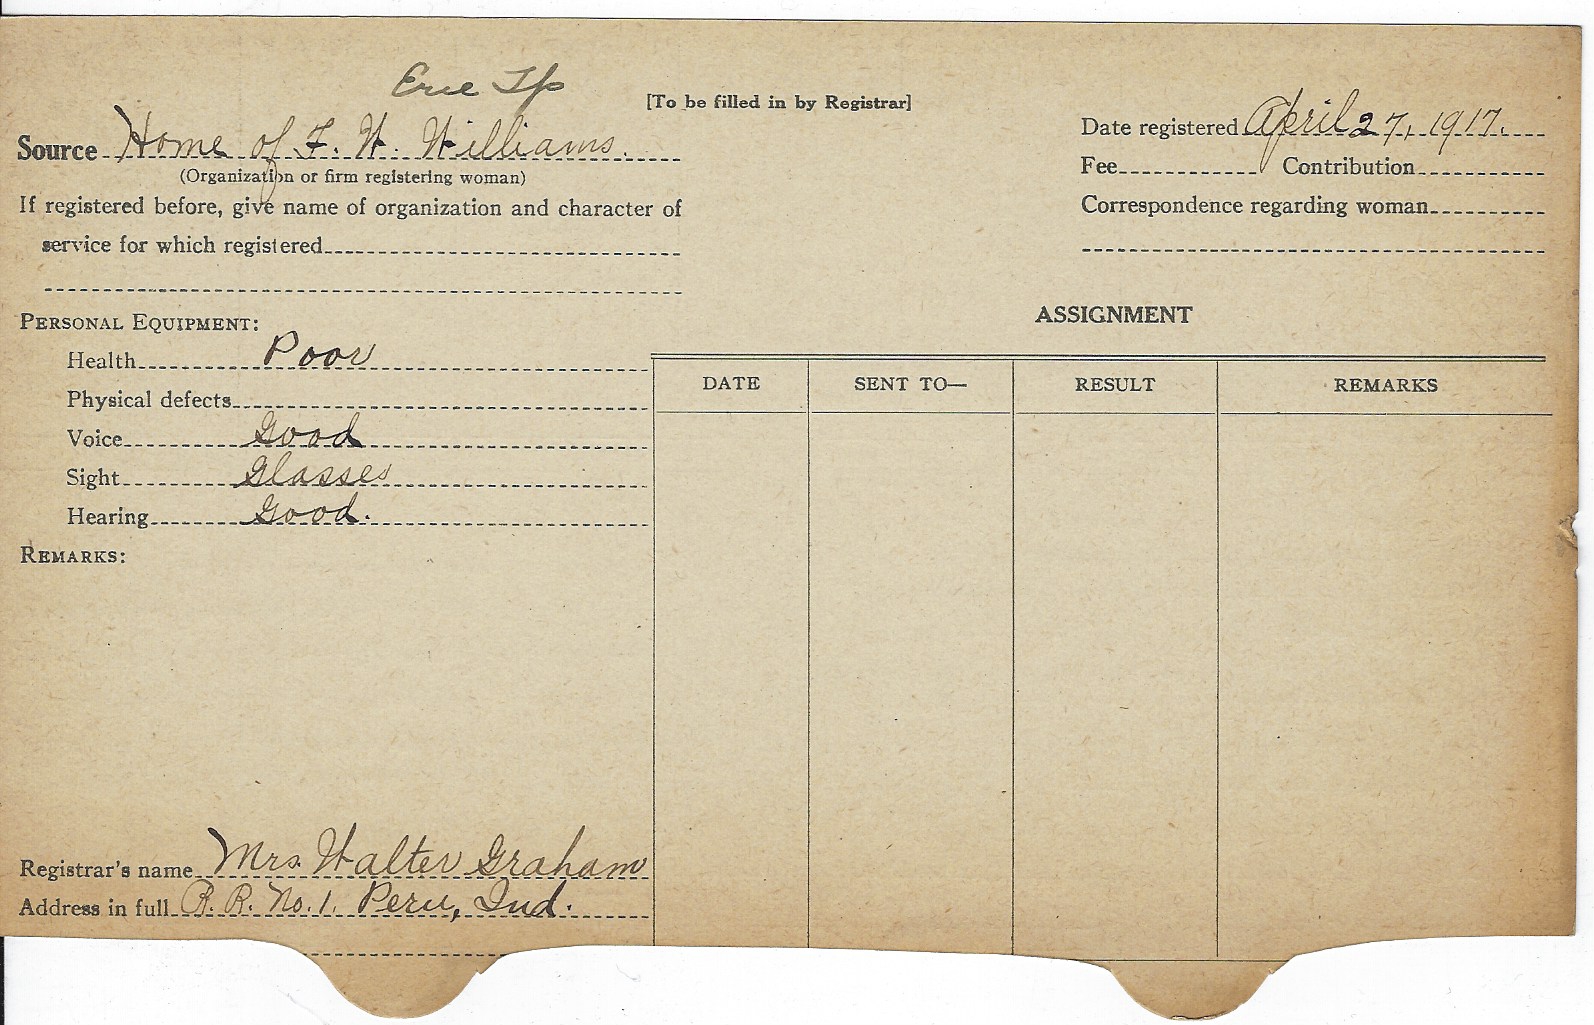 Erie Tp
[To be filled in by Registrar]
Source Home of F. W. Williams.
(Organization or firm registering woman)
If registered before, give name of organization and character of
service for which registered
Date registered April 27, 1917.
Fee Contribution
Correspondence regarding woman
PERSONAL EQUIPMENT:
Health Poor
Physical defects
Voice Good
Sight Glasses
Hearing Good.
REMARKS:
ASSIGNMENT
DATE SENT TO— RESULT REMARKS
Registrar's name Mrs. Walter Graham
Address in full R. R. No. 1. Peru, Ind.